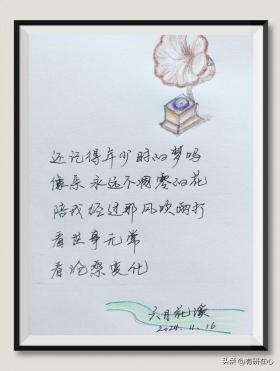 还记得年少时的梦吗
像朵永远不凋零的花
陪我经过那风吹雨打
看世事无常
看沧桑变化
六月花溪
2024.11.16
头条@有研在心